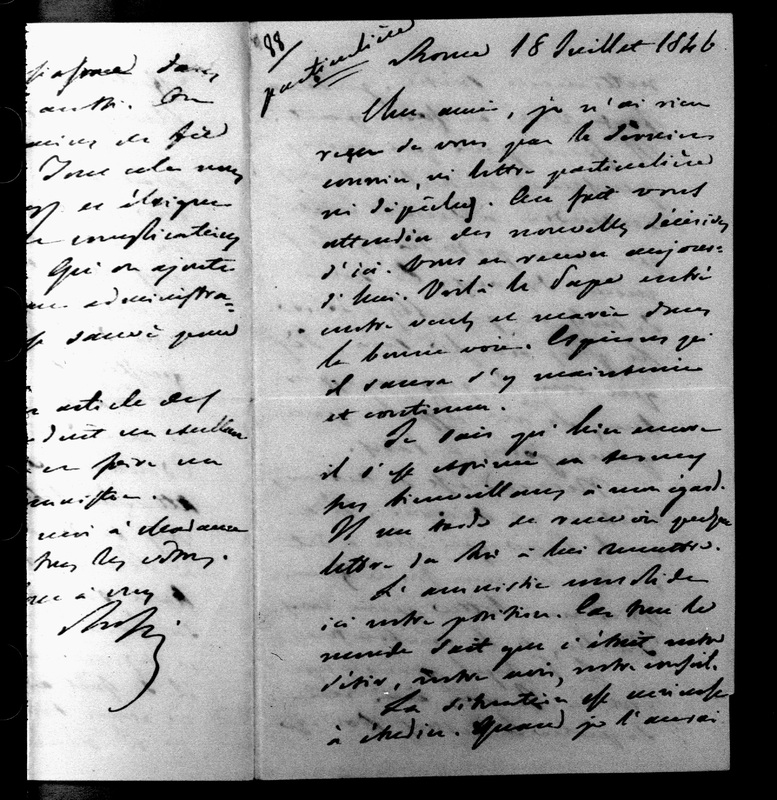 dans
aussi. On
de
Tout cela nous
et éloigner
complications
Qu'on ajoute
administra-
article des
en faire un
à Madame
tous les vôtres.
à vous
Rossi
88
particulière
Rome 18 Juillet 1846
Cher ami, je n'ai rien
reçu de vous par le dernier
courrier, ni lettre particulière
ni dépêche. Au fait vous
attendiez des nouvelles décisives
d'ici. Vous en recevez aujour-
d'hui. Voilà le Pape entré
notre vent et marée dans
la bonne voie. Espérons qu'
il saura s'y maintenir
et continuer.
Je sais qu'hier encore
il s'est exprimé en termes
très bienveillans à mon égard.
Il me tarde de recevoir quelque
lettre du Roi à lui remettre.
L'amnistie consolide
ici notre position. Car tout le
monde sait que c'était notre
désir, notre avis, notre conseil.
La situation est curieuse
à étudier. Quand je l'aurai